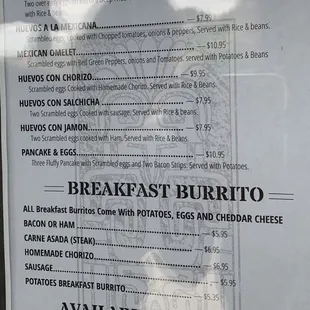 with Rice & Beans.
HUEVOS A LA MEXICANA $7.99
Scrambled eggs cooked with Chopped tomatoes, onions & peppers, Served with Rice & beans.
MEXICAN OMELET $10.95
Scrambled eggs with Bell Green Peppers, onions and Tomatoes. served with Potatoes & Beans
HUEVOS CON CHORIZO $9.95
Scrambled eggs Cooked with Homemade Chorizo. Served with Rice & Beans.
HUEVOS CON SALCHICHA $7.95
Two Scrambled eggs Cooked with sausage, Served with Rice & beans.
HUEVOS CON JAMON $7.95
Two Scrambled eggs cooked with Ham, Served with Rice & Beans.
PANCAKE & EGGS $10.95
Three Fluffy Pancake with Scrambled eggs and Two Bacon Strips. Served with Potatoes.
BREAKFAST BURRITO
ALL Breakfast Burritos Come With POTATOES, EGGS AND CHEDDAR CHEESE
BACON OR HAM $5.95
CARNE ASADA (STEAK) $6.95
HOMEMADE CHORIZO $6.95
SAUSAGE $5.95
POTATOES BREAKFAST BURRITO $5.35